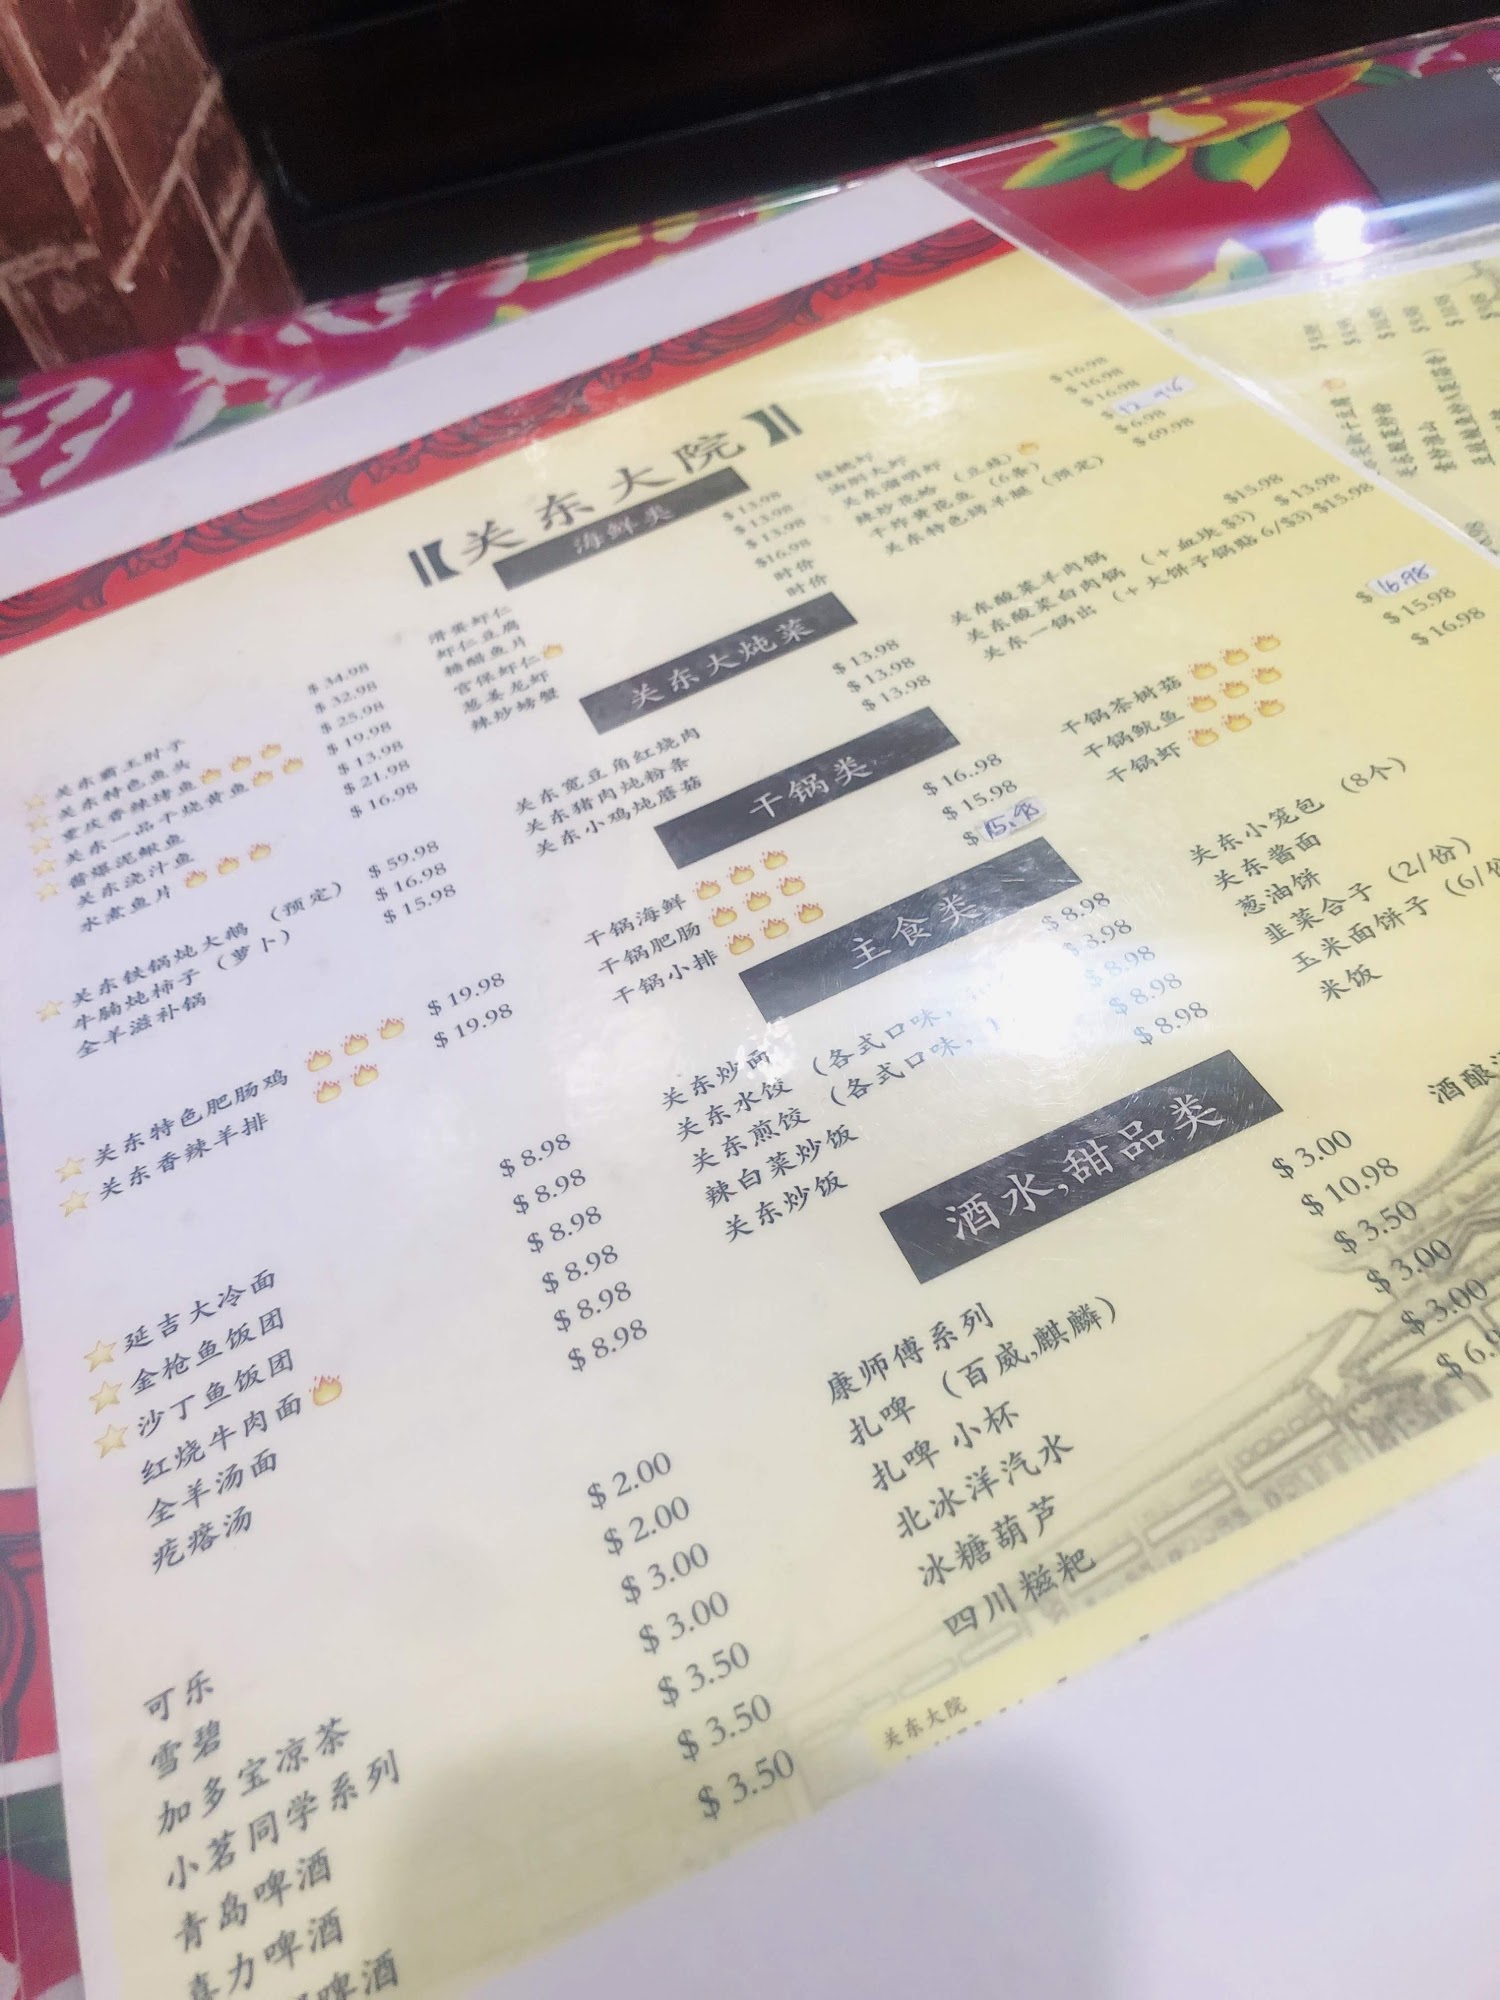 【关东大院】
海鲜类
关东霸王肘子 $34.98
关东特色鱼头 $32.98
重庆香辣烤鱼 $25.98
关东一品干烧黄鱼 $19.98
酱爆泥鳅鱼 $13.98
关东浇汁鱼 $21.98
水煮鱼片 $16.98
滑蛋虾仁 $13.98
虾仁豆腐 $13.98
糖醋鱼片 $13.98
宫保虾仁 $16.98
葱姜龙虾 时价
辣炒螃蟹 时价
$16.98
油焖大虾 $16.98
关东溜明虾 $16.98
辣炒花蛤 (豆豉) $12.98
干炸黄花鱼 (6条) $6.98
关东特色烤羊腿 (预定) $69.98
关东大炖菜
关东铁锅炖大鹅 (预定) $59.98
牛腩炖柿子 (萝卜) $16.98
全羊滋补锅 $15.98
关东宽豆角红烧肉 $13.98
关东猪肉炖粉条 $13.98
关东小鸡炖蘑菇 $13.98
关东酸菜羊肉锅 $15.98
关东酸菜白肉锅 (+血块$3) $13.98
关东一锅出 (+大饼子锅贴6/$3) $15.98
干锅类
关东特色肥肠鸡 $19.98
关东香辣羊排 $19.98
干锅海鲜 $16.98
干锅肥肠 $15.98
干锅小排 $15.98
干锅茶树菇 $16.98
干锅鱿鱼 $15.98
干锅虾 $16.98
主食类
延吉大冷面 $8.98
金枪鱼饭团 $8.98
沙丁鱼饭团 $8.98
红烧牛肉面 $8.98
全羊汤面 $8.98
疙瘩汤 $8.98
关东炒面 $8.98
关东水饺 (各式口味, $8.98
关东煎饺 (各式口味, ) $8.98
辣白菜炒饭 $8.98
关东炒饭 $8.98
关东小笼包 (8个)
关东酱面
葱油饼
韭菜合子 (2/份)
玉米面饼子 (6/份
米饭
酒水,甜品类
可乐 $2.00
雪碧 $2.00
加多宝凉茶 $3.00
小茗同学系列 $3.00
青岛啤酒 $3.50
喜力啤酒 $3.50
啤酒 $3.50
康师傅系列 $3.00
扎啤 (百威,麒麟) $10.98
扎啤 小杯 $3.50
北冰洋汽水 $3.00
冰糖葫芦 $3.00
四川糍粑 $6.9
酒酿
关东大院